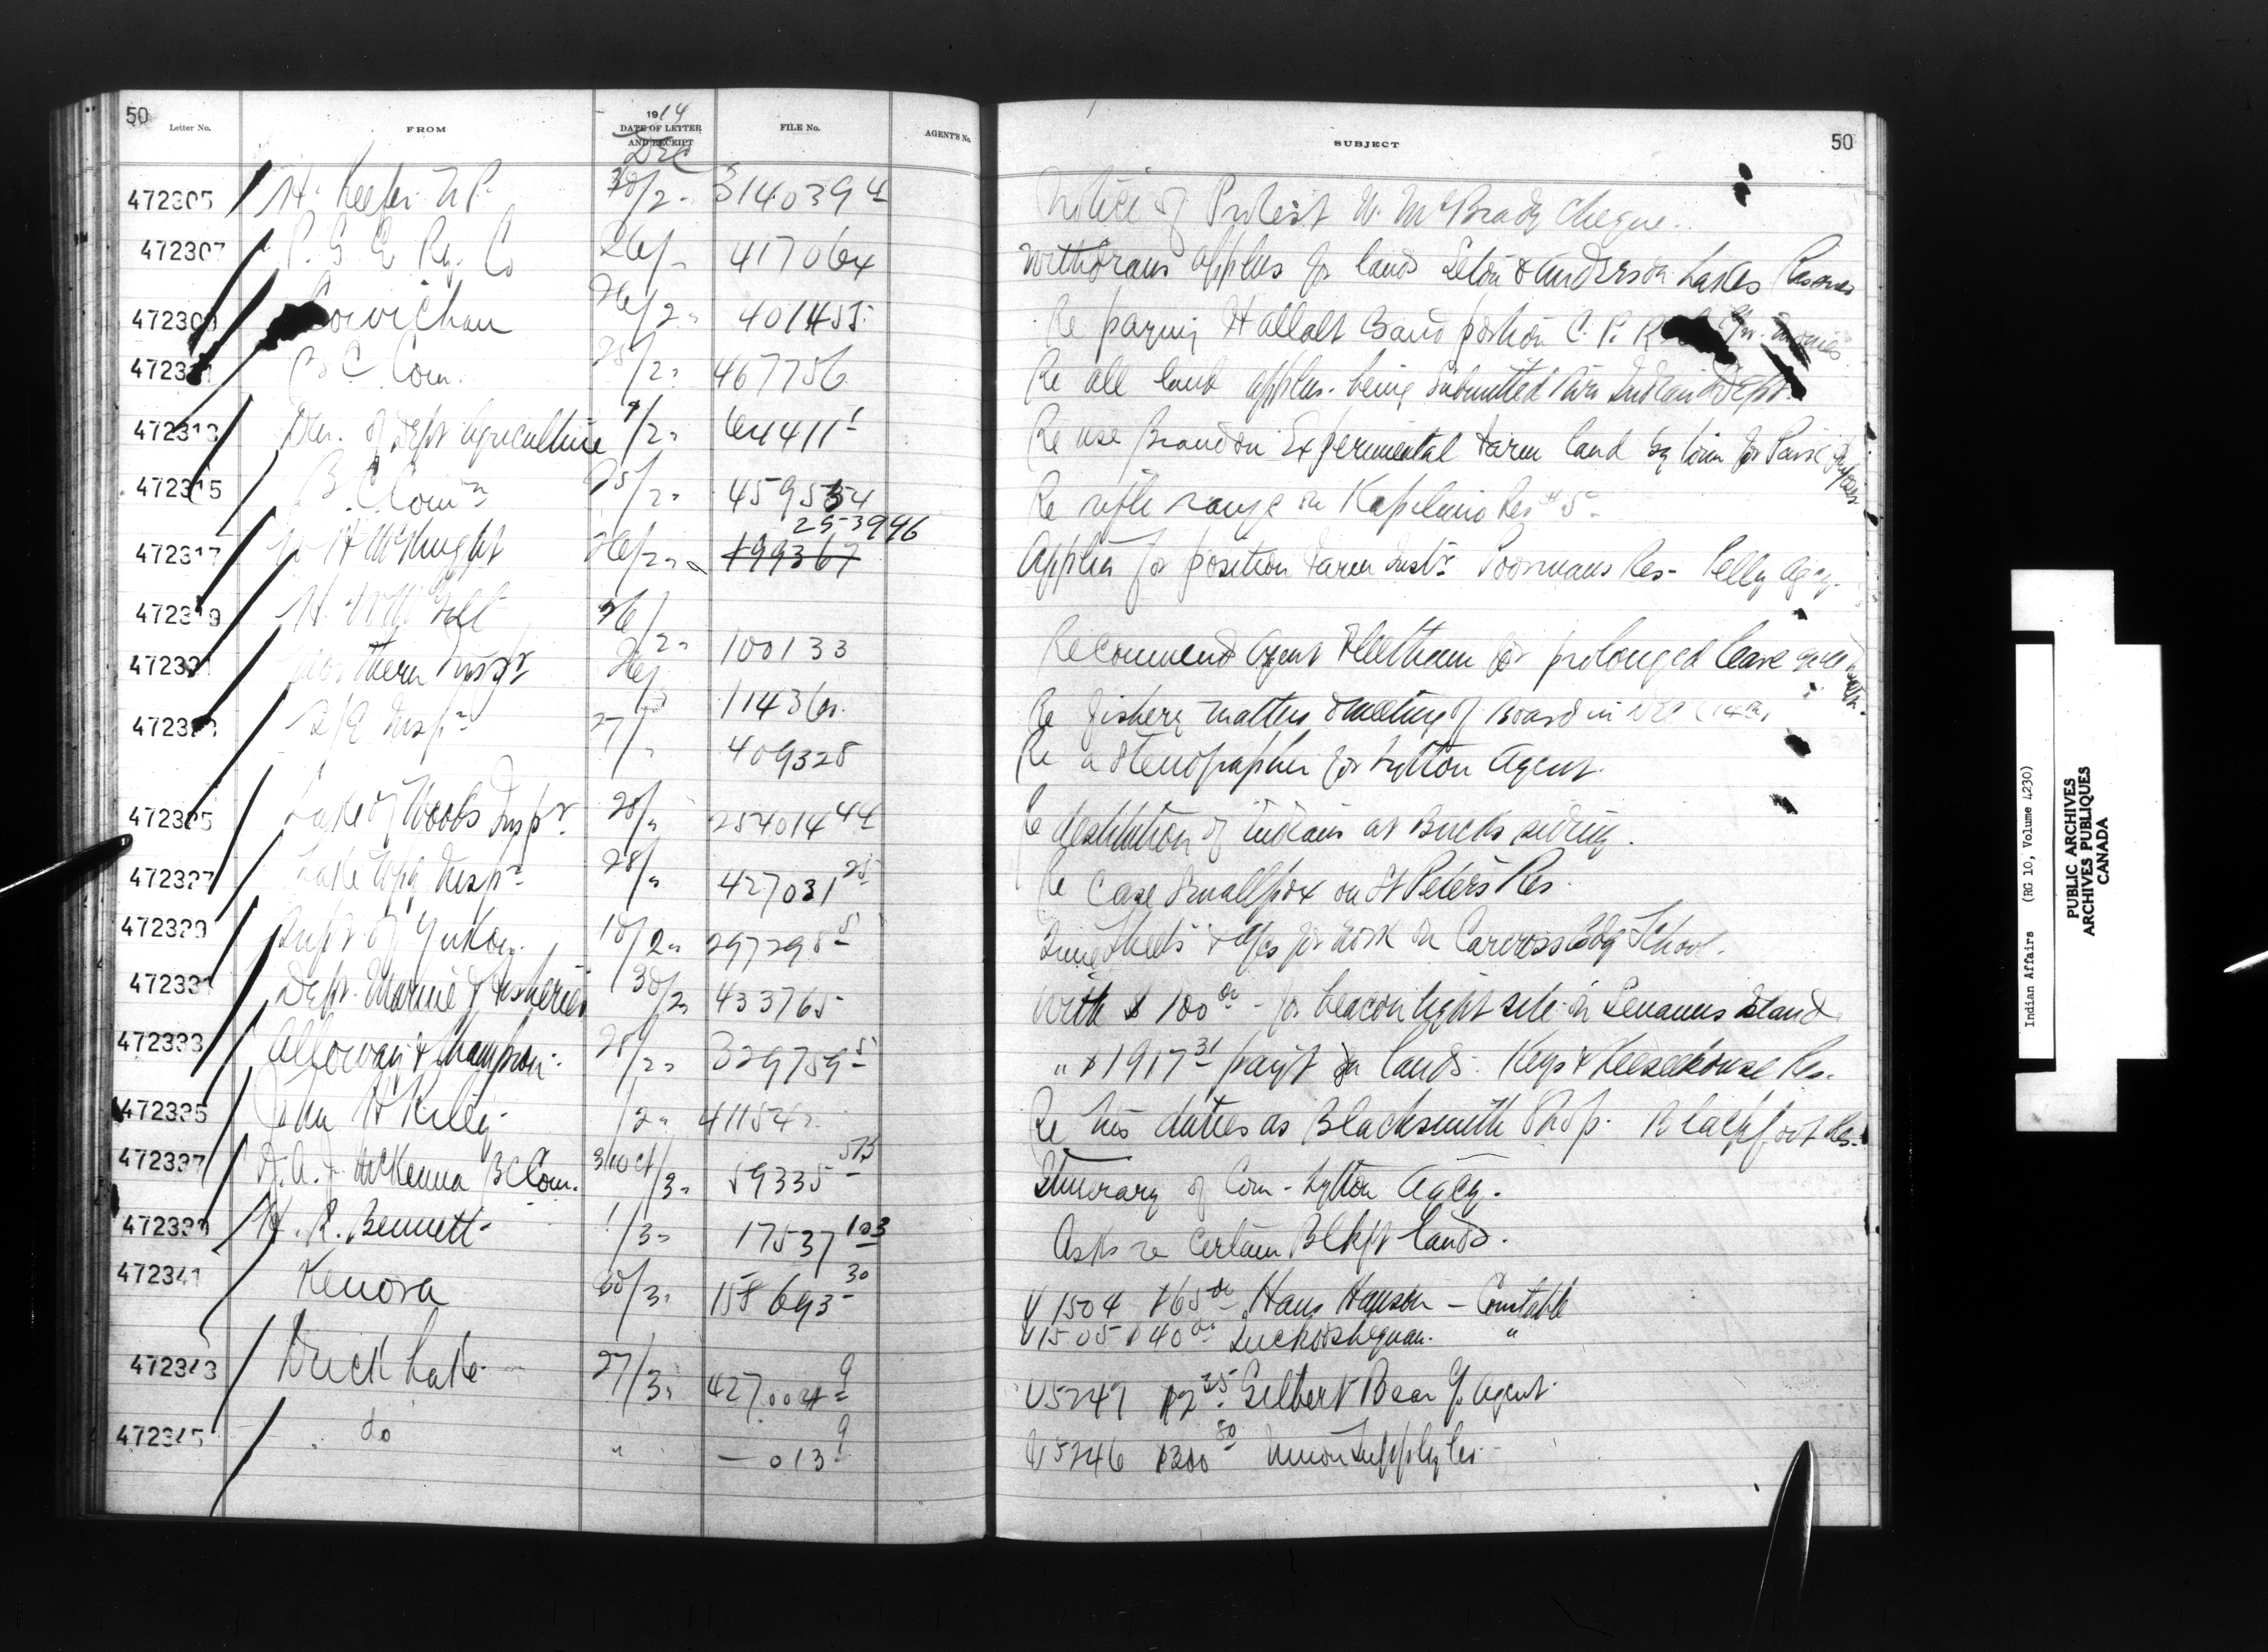 50
Letter No. FROM 1914 DATE OF LETTER AND RECEIPT FILE No. AGENT'S No. SUBJECT 50
Dec
472305 H. Keefer N.P. 30/2 " 314039 4 Notice of Protest W. McBrady cheque.
472307 P. G. E. Ry. Co 26/ " 417064 Withdraws applns for lands Seton & Anderson Lakes Reserves
472309 Cowichan 26/2 " 401455 Re paying Hallalt Band portion C. P. R.
B C Com. 28/2 " 467756 Re all land applns. being submitted thro Indian Dept.
472313 Den. of Dept Agriculture /2 " 64411 1 Re use Brandon Experimental Farm land by town for Park purposes
472315 B. C. Comn 25/2 " 459534 Re rifle range on Kapilano Res # 5
25-3946
472317 W H McKnight 26/2 " 199367 Applies for position Farm Instr. Poormans Res - Pelly Agcy.
472319 H. 26/2 " 100133 Recommend Agent for prolonged leave
472321 Northern Inspr 26/ Re fishery matters & meeting of Board in
472323 Inspr 27/ " 409328 Re a Stenographer for Lytton Agent.
472325 Lake of Woods Inspr. 28/ " 254014 44 Re destitution of Indians at Bucks siding.
472327 Lake Wpg Inspr 28/ " 427031 25 Re Case Smallpox on St Peters Res.
472329 Supt. of Yukon. 18/2 " 297298 5 Time Sheets & a/cs for work on Carcross Bdg School.
472331 Dept. Marine & Fisheries 30/2 " 433765 With $ 100 00 - for beacon light site on Senanus Island
472333 Alloway & Champion. 28/2 " 329759 5 " $ 1917 31 pay't on lands. Keys & Keeseekouse Res.
472335 John H Riley /2 " 41154 Re his duties as Blacksmith Shop. Blackfoot Res.
472337 J. A. J McKenna B C Com. 31 Oct/3 " 59335 Itinerary of Com - Lytton Agcy.
472339 H. R. Bennett 1/3 " 17537 103 Asks re certain Blkft lands.
472341 Kenora 30/3 " 158693 30 V 1504 $65 00 Hans Hanson - Constable
V 1505 $ 40 00 "
472343 Duck Lake 27/3 " 427004 9 V 5247 $2 25 Gilbert Bear 
472345 do " — 013 9 V 5246 $300 80 Union Supply Co.
Indian Affairs (RG 10, Volume 4230)
PUBLIC ARCHIVES
ARCHIVES PUBLIQUES
CANADA